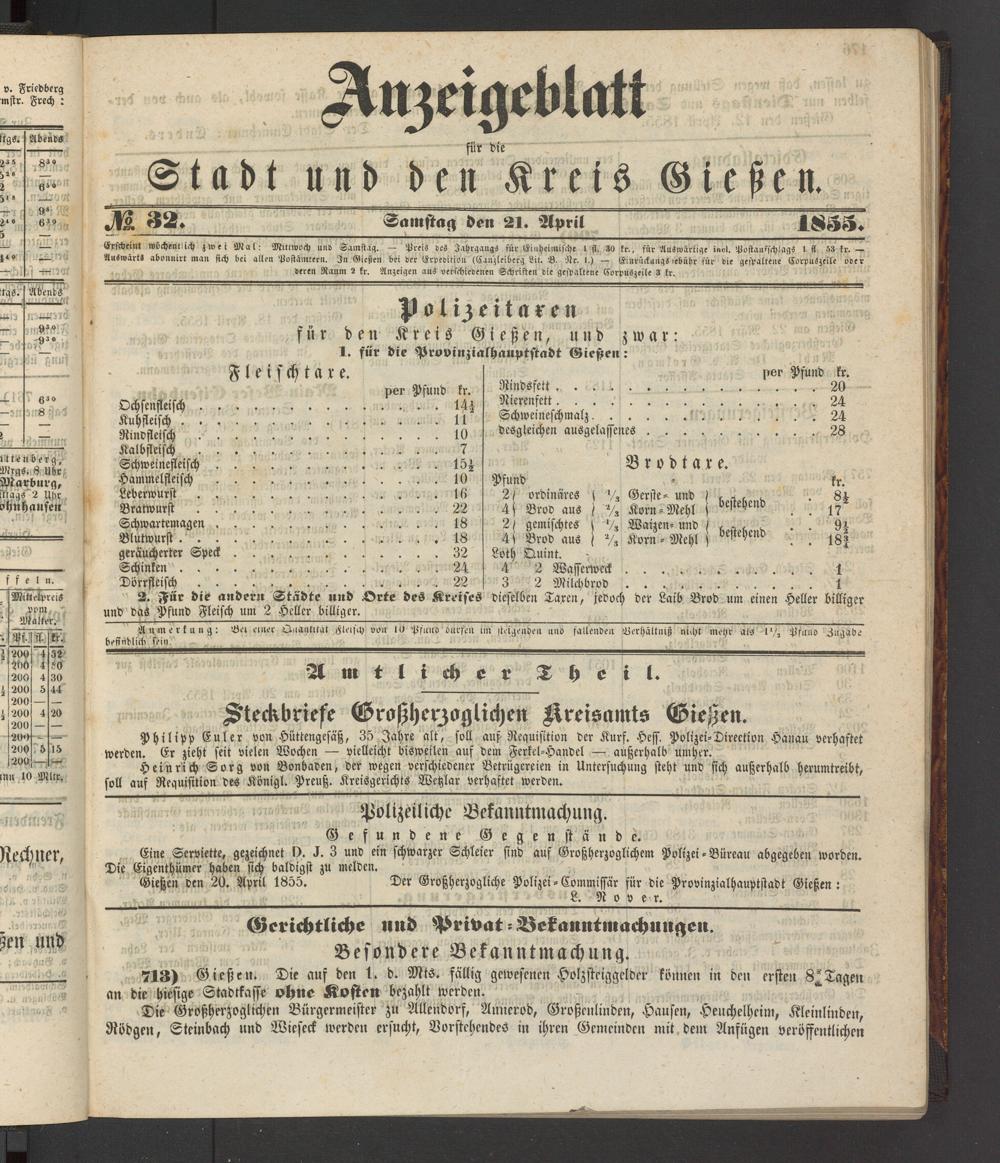 v. Friedberg
mstr. Frech :
Abends
Abends
Mrgs. 8 Uhr
Marburg,
ttags 2 Uhr
ohnhausen
ffeln.
Mittelpreis
vom
Malter.
200 4 32
200 4 30
200 5 44
200 — —
200 4 20
200 — —
200 — —
200 5 15
200 — —
Rechner,
ßen und
Anzeigeblatt
für die
Stadt und den Kreis Gießen.
№ 32. Samstag den 21. April 1855.
Erscheint wöchentlich zwei Mal: Mittwoch und Samstag. — Preis des Jahrgangs für Einheimische 1 fl. 30 kr., für Auswärtige incl. Postaufschlags 1 fl. 53 kr. —
Auswärts abonnirt man sich bei allen Postämtern. In Gießen bei der Expedition (Canzleiberg Lit. B. Nr. 1.) — Einrückungsgebühr für die gespaltene Corpuszeile oder
deren Raum 2 kr. Anzeigen aus verschiedenen Schriften die gespaltene Corpuszeile 3 kr.
Polizeitaxen
für den Kreis Gießen, und zwar:
1. für die Provinzialhauptstadt Gießen:
Fleischtaxe.
per Pfund kr.
Ochsenfleisch . . . . . . . . . 14½
Kuhfleisch . . . . . . . . . 11
Rindfleisch . . . . . . . . . 10
Kalbfleisch . . . . . . . . . 7
Schweinefleisch . . . . . . . . . 15½
Hammelsfleisch . . . . . . . . . 10
Leberwurst . . . . . . . . . 16
Bratwurst . . . . . . . . . 22
Schwartemagen . . . . . . . . . 18
Blutwurst . . . . . . . . . 18
geräucherter Speck . . . . . . . . . 32
Schinken . . . . . . . . . 24
Dörrfleisch . . . . . . . . . 22
per Pfund kr.
Rindsfett . . . . . . . . . 20
Nierenfett . . . . . . . . . 24
Schweineschmalz . . . . . . . . . 24
desgleichen ausgelassenes . . . . . . . . . 28
Brodtaxe.
Pfund kr.
2 ordinäres ⅓ Gerste- und bestehend 8½
4 Brod aus ⅔ Korn-Mehl 17
2 gemischtes ⅓ Waizen- und bestehend 9½
4 Brod aus ⅔ Korn-Mehl . . 18¾
Loth Quint.
4 2 Wasserweck . . . . . . . 1
3 2 Milchbrod . . . . . . . 1
2. Für die andern Städte und Orte des Kreises dieselben Taxen, jedoch der Laib Brod um einen Heller billiger
und das Pfund Fleisch um 2 Heller billiger.
Anmerkung: Bei einer Quantität Fleisch von 10 Pfund dürfen im steigenden und fallenden Verhältniß nicht mehr als 1½ Pfund Zugabe
befindlich sein.
Amtlicher Theil.
Steckbriefe Großherzoglichen Kreisamts Gießen.
Philipp Euler von Hüttengesäß, 35 Jahre alt, soll auf Requisition der Kurf. Hess. Polizei-Direction Hanau verhaftet
werden. Er zieht seit vielen Wochen — vielleicht bisweilen auf dem Ferkel-Handel — außerhalb umher.
Heinrich Sorg von Bonbaden, der wegen verschiedener Betrügereien in Untersuchung steht und sich außerhalb herumtreibt,
soll auf Requisition des Königl. Preuß. Kreisgerichts Wetzlar verhaftet werden.
Polizeiliche Bekanntmachung.
Gefundene Gegenstände.
Eine Serviette, gezeichnet D. J. 3 und ein schwarzer Schleier sind auf Großherzoglichem Polizei-Büreau abgegeben worden.
Die Eigenthümer haben sich baldigst zu melden.
Gießen den 20. April 1855. Der Großherzogliche Polizei-Commissär für die Provinzialhauptstadt Gießen:
L. Nover.
Gerichtliche und Privat-Bekanntmachungen.
Besondere Bekanntmachung.
713) Gießen. Die auf den 1. d. Mts. fällig gewesenen Holzsteiggelder können in den ersten 8 Tagen
an die hiesige Stadtkasse ohne Kosten bezahlt werden.
Die Großherzoglichen Bürgermeister zu Allendorf, Annerod, Großenlinden, Hausen, Heuchelheim, Kleinlinden,
Rödgen, Steinbach und Wieseck werden ersucht, Vorstehendes in ihren Gemeinden mit dem Anfügen veröffentlichen